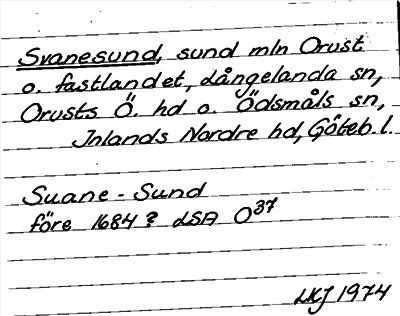 Svanesund, sund mln Orust
o. fastlandet, Långelanda sn,
Orusts Ö. hd o. Ödsmåls sn,
Inlands Nordre hd, Göteb. l.
Svane-Sund
före 1684? LSA O37
LKJ 1974